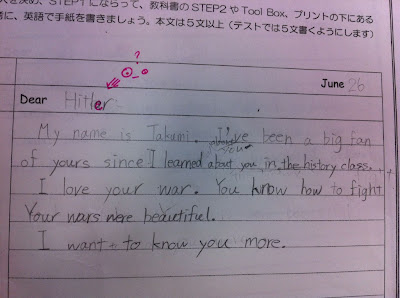 人を決め、STEP1にならって、教科書のSTEP2やTool Box、プリントの下にある
に、英語で手紙を書きましょう。本文は5文以上(テストでは5文書くようにします)
?
June 26
Dear Hitler
My name is Takumi. I've been a big fan
of yours since I learned about you in the history class.
I love your war. You know how to fight.
Your wars were beautiful.
I want to know you more.